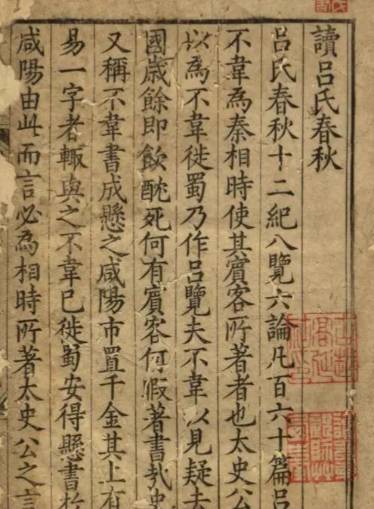 讀呂氏春秋
呂氏春秋十二紀八覽六論凡百六十篇呂
不韋為秦相時使其賓客所著者也太史公
以為不韋徙蜀乃作呂覽夫不韋以見疑去
國歲餘即飲酖死何有賓客何假著書㢤史
又稱不韋書成懸之咸陽市置千金其上有
易一字者輒與之不韋已徙蜀安得懸書於
咸陽由此而言必為相時所著太史公之言